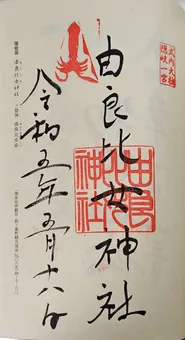 式内大社
隠岐一宮
由良比女神社
由良比女神社
令和五年五月十八日
隠岐國 由良比女神社